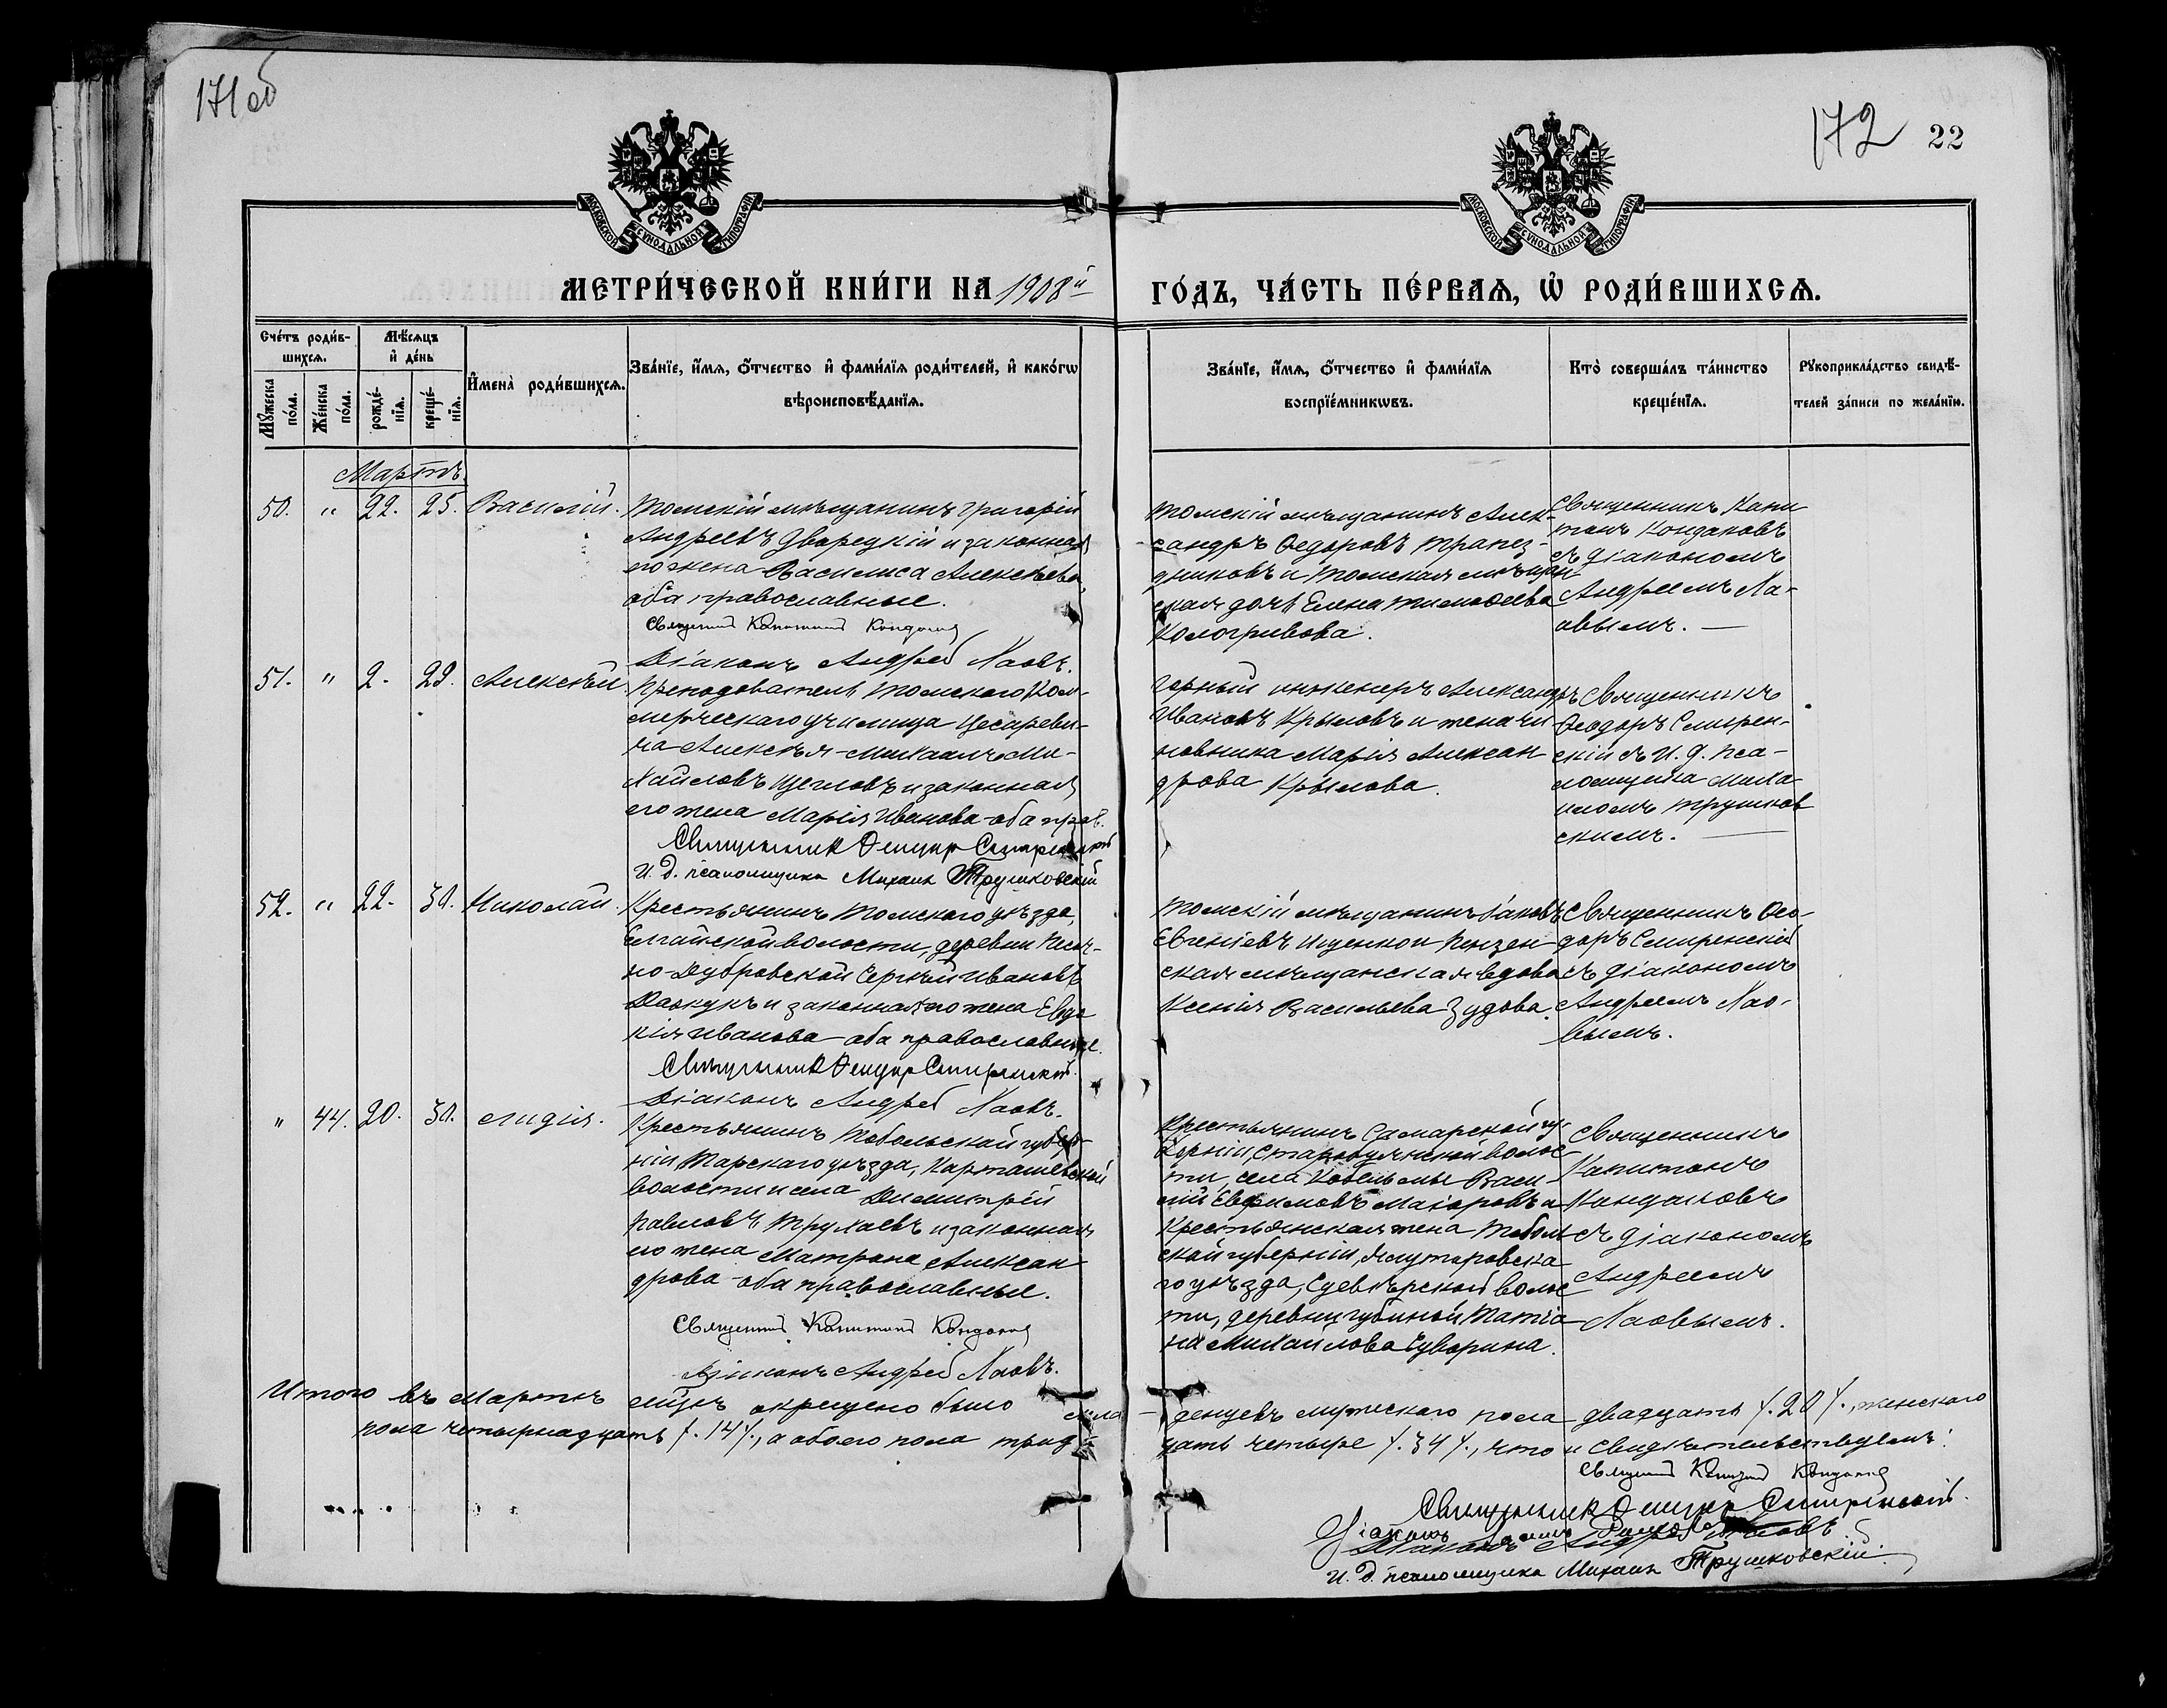 171об
172
22
МОСКОВСКОЙ СѴНОДАЛЬНОЙ ТИПОГРАФІИ
МОСКОВСКОЙ СѴНОДАЛЬНОЙ ТИПОГРАФІИ
МЕТРИ́ЧЕСКОЙ КНИ́ГИ НА 1908й
ГО́ДЪ, ЧА́СТЬ ПЕ́РВАѦ, Ѡ҆ РОДИ́ВШИХСѦ.
Сче́тъ роди́в-
шихсѧ.
Мꙋ́жеска по́ла.
Же́нска по́ла.
Мѣ́сѧцъ
и҆ де́нь
рожде́-
нїѧ.
креще́-
нїѧ.
И҆мена̀ роди́вшихсѧ.
Зва́нїе, и҆́мѧ, ѻ҆́тчество и҆ фами́лїѧ роди́телей, и҆ како́гѡ
вѣроисповѣ́данїѧ.
Зва́нїе, и҆́мѧ, ѻ҆́тчество и҆ фами́лїѧ
воспрїе́мникѡвъ.
Кто̀ соверша́лъ та́инство
креще́нїѧ.
Рꙋкоприкла́дство свидѣ́-
телей за́писи по жела́нїю.
Мартъ.
50. " 22. 25. Василій.
Томскій мѣщанинъ Григорій
Андреевъ Дворецкій и законная
его жена Василиса Алексѣева,
оба православные.
Священникъ Капитонъ Кондаковъ
Діаконъ Андрей Наовъ.
Томскій мѣщанинъ Алек-
сандръ Ѳедоровъ Трапез-
дниковъ и Томская мѣщан
ская дочь Елена Тимоѳеева
Кологривова.
Священникъ Капи
тонъ Кондаковъ
съ діакономъ
Андреемъ На-
овымъ. —
51. " 2. 29. Алексѣй.
Преподаватель Томскаго Ком-
мерческаго училища Цесареви-
ча Алексѣя - Михаилъ Ми-
хайловъ Щегловъ и законная
его жена Марія Иванова - оба прав.
Священникъ Ѳеодоръ Смиренскій
И. д. псаломщика Михаилъ Трушковскій
Горный инженеръ Александръ
Ивановъ Крыловъ и жена чи
новника Марія Алексан
дрова Крылова.
Священникъ
Ѳеодоръ Смирен-
скій съ И. д. пса-
ломщика Миха
иломъ Трушков
скимъ. —
52. " 22. 30. Николай.
Крестьянинъ Томскаго уѣзда,
Елгайской волости, деревни Песоч-
но-Дубровской Сергѣй Ивановъ
и законная его жена Евдо
кія Иванова - оба православные.
Священникъ Ѳеодоръ Смиренскій.
Діаконъ Андрей Наовъ.
Томскій мѣщанинъ Іаковъ
Евгеніевъ Ищенко и Пензен
ская мѣщанская вдова
Ксенія Васильева Зудова.
Священникъ Ѳео-
доръ Смиренскій
съ діакономъ
Андреемъ Нао-
вымъ.
" 44. 20. 30. Лидія.
Крестьянинъ Тобольской губер-
ніи Тарскаго уѣзда, Карташевской
волости и села Димитрій
Павловъ и законная
его жена Матрона Алексан
дрова - оба православные.
Священникъ Капитонъ Кондаковъ
Діаконъ Андрей Наовъ.
Крестьянинъ Самарской гу-
берніи, волос-
ти, села Васи-
лій Евфимовъ Маіоровъ и
Крестьянская жена Тоболь
ской губерніи, Ялуторовска
го уѣзда, Суерской волос
ти, деревни Губиной Татіа
на Михайлова Суворина.
Священникъ
Капитонъ
Кондаковъ
съ діакономъ
Андреемъ
Наовымъ.
Итого въ Мартѣ мѣсяцѣ окрещено было мла-денцевъ мужескаго пола двадцать /.20/., женскаго
пола четырнадцать /.14/., а обоего пола трид-цать четыре /.34/., что и свидѣтельствуемъ:
Священникъ Капитонъ Кондаковъ
Священникъ Ѳеодоръ Смиренскій.
Діаконъ
Діаконъ Андрей Наовъ.
И. д. псаломщика Михаилъ Трушковскій.